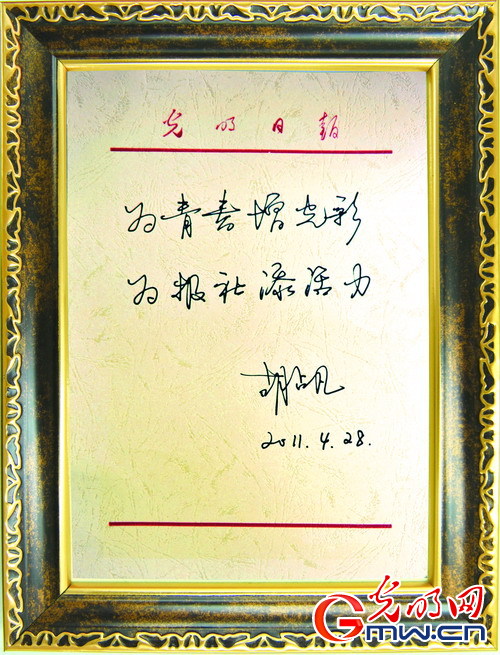 光明日報
为青春增光彩
为报社添活力
胡占凡
2011.4.28.
光明网
Gmw.cn